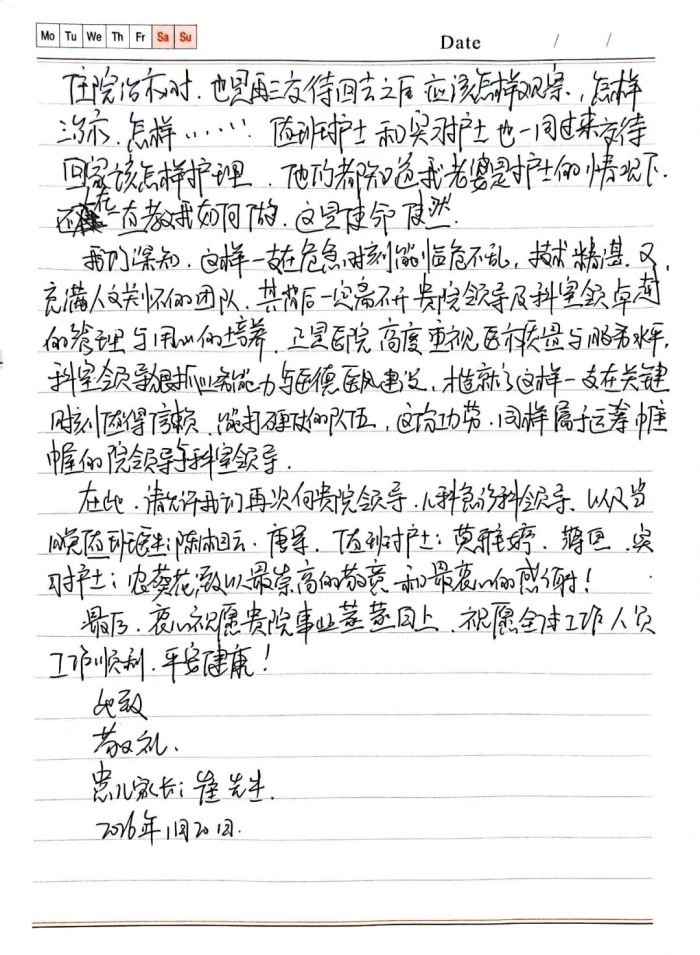 Mo Tu We Th Fr Sa Su
Date / /
住院治疗时，也是再三交待回去之后应该怎样观察，怎样
治疗，怎样…… 值班护士和实习护士也一同过来交待
回家该怎样护理。他们都知道我老婆是护士的情况下，
还在一直教我如何做，这是使命使然。
我们深知，这样一支在危急时刻能临危不乱，技术精湛，又
充满人文关怀的团队，其背后一定离不开贵院领导及科室领导卓越
的管理与用心的培养，正是医院高度重视医疗质量与服务水平，
科室领导狠抓业务能力与医德医风建设，才造就了这样一支在关键
时刻值得信赖、能打硬仗的队伍，这份功劳，同样属于运筹帷
幄的院领导与科室领导。
在此，请允许我们再次向贵院领导、儿科急诊科领导、以及当
晚值班医生：陈 云、唐 、值班护士：莫 婷、 、实
习护士：农葵花，致以最崇高的敬意和最衷心的感谢！
最后，衷心祝愿贵院事业蒸蒸日上，祝愿全体工作人员
工作顺利、平安健康！
此致
敬礼，
患儿家长：崔先生
2026年1月20日